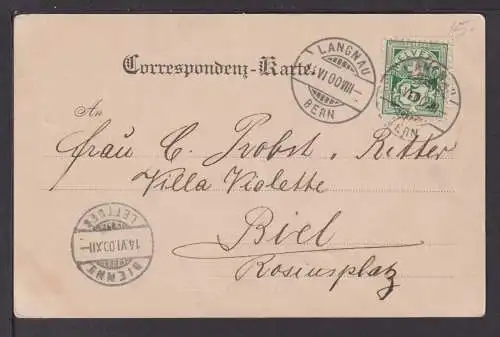 15.
Correspondenz-Karte.
LANGNAU
14.VI.00.VIII
BERN
HELVETIA
5
LANGNAU
BERN
An
Frau C. Probst-Ritter
Villa Violette
Biel
Rosiusplatz
LETTRES
14.VI.00.XII
BIENNE